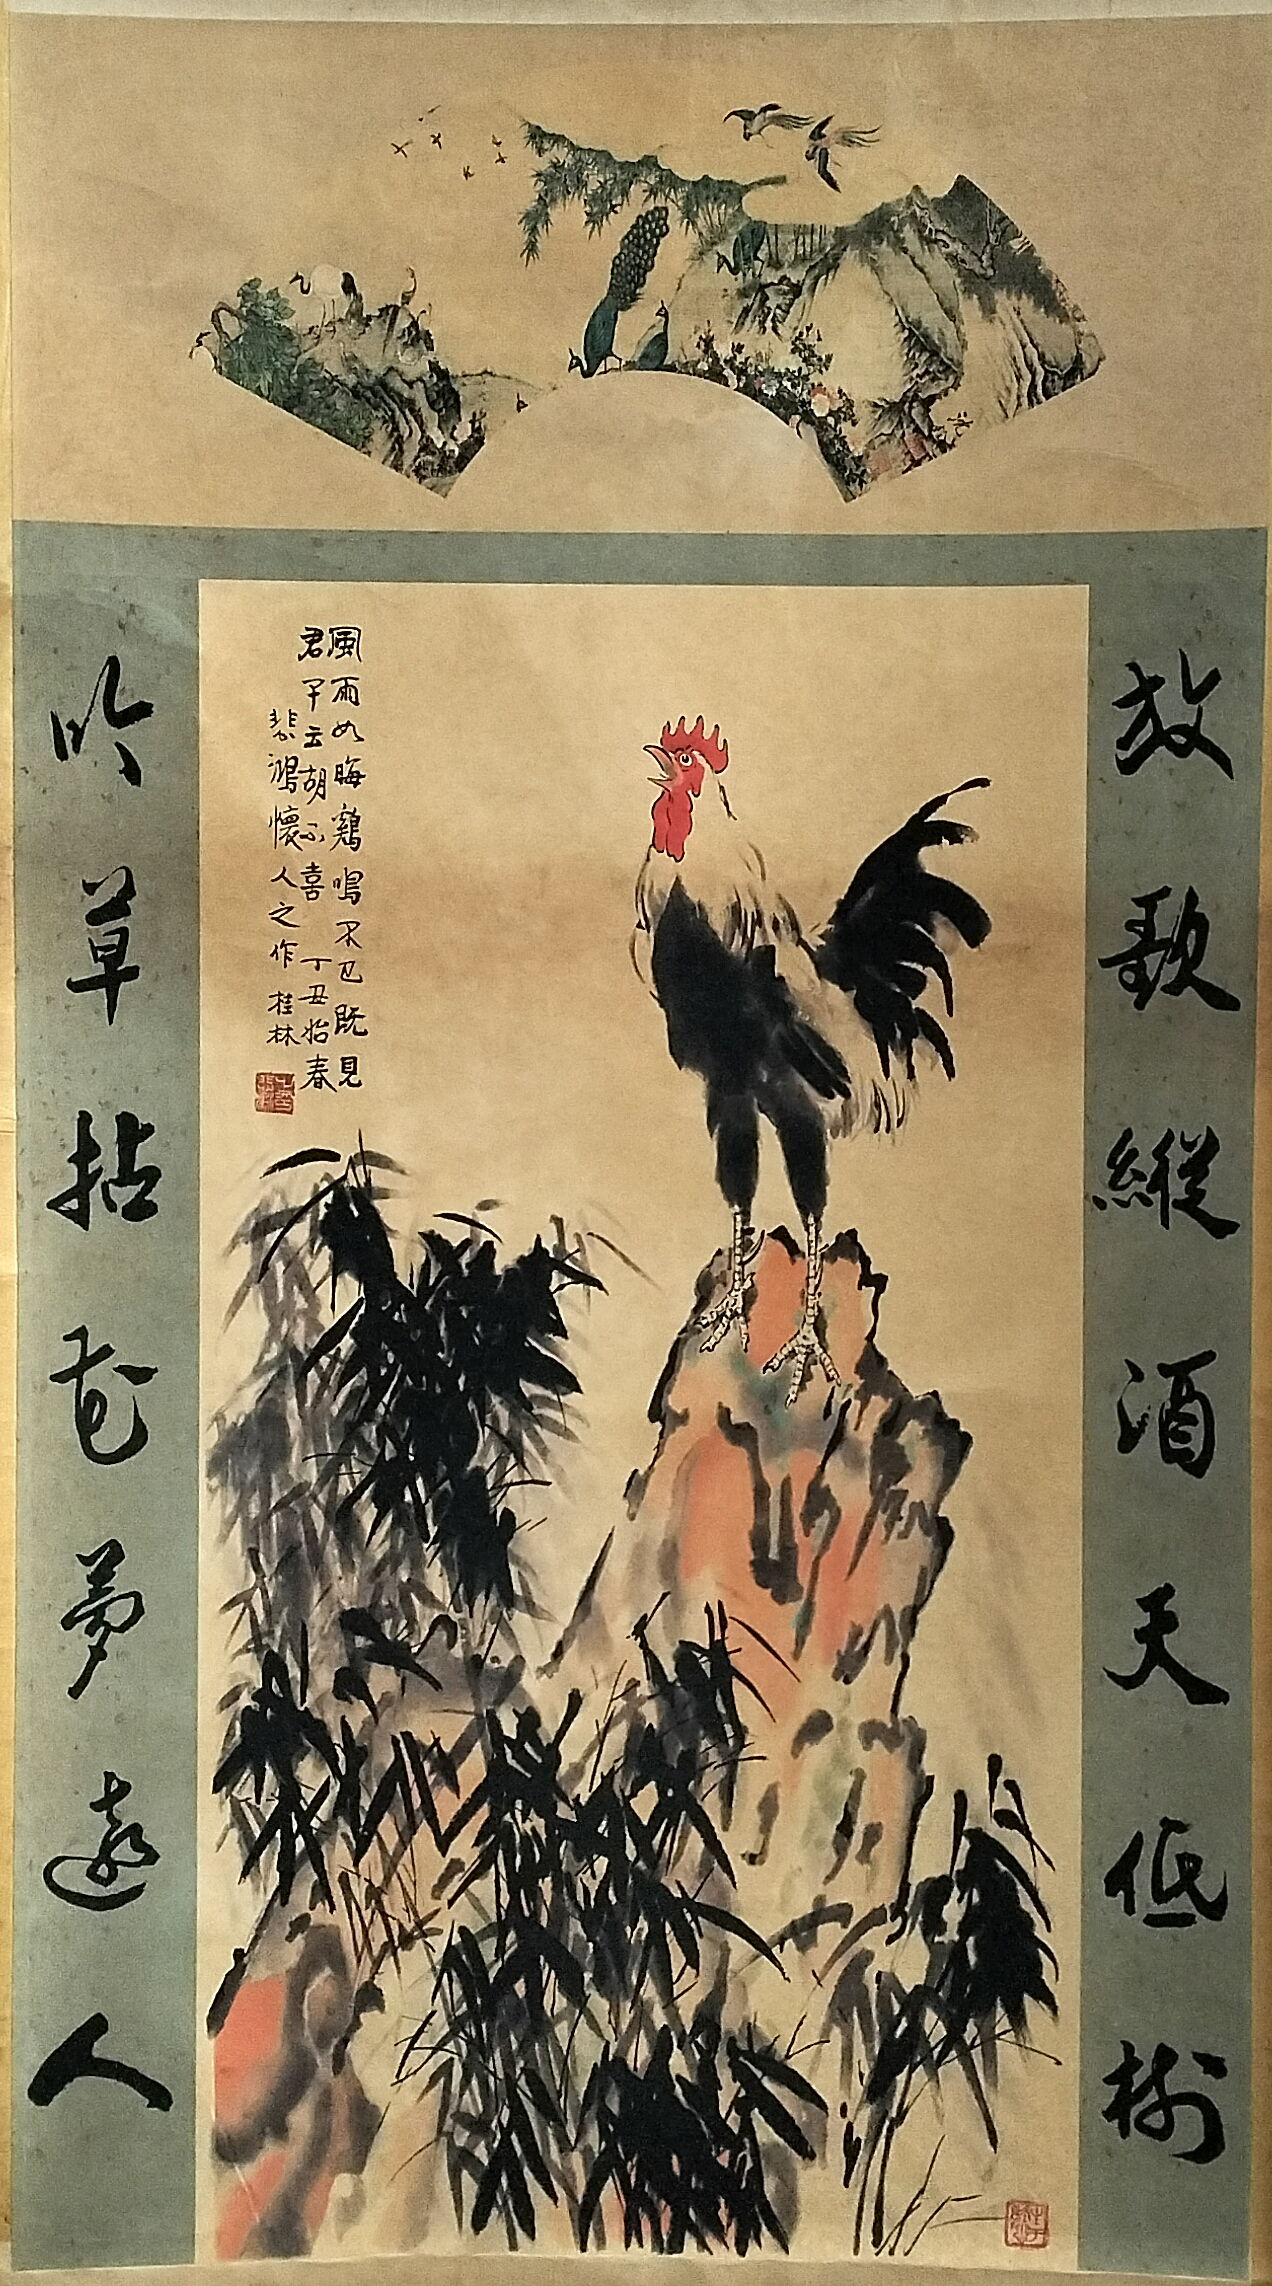 放歌縱酒天低樹
風雨如晦鷄鳴不已既見
君子云胡不喜 丁丑始春
悲鴻懷人之作 桂林
吟草拈花夢遠人
沈